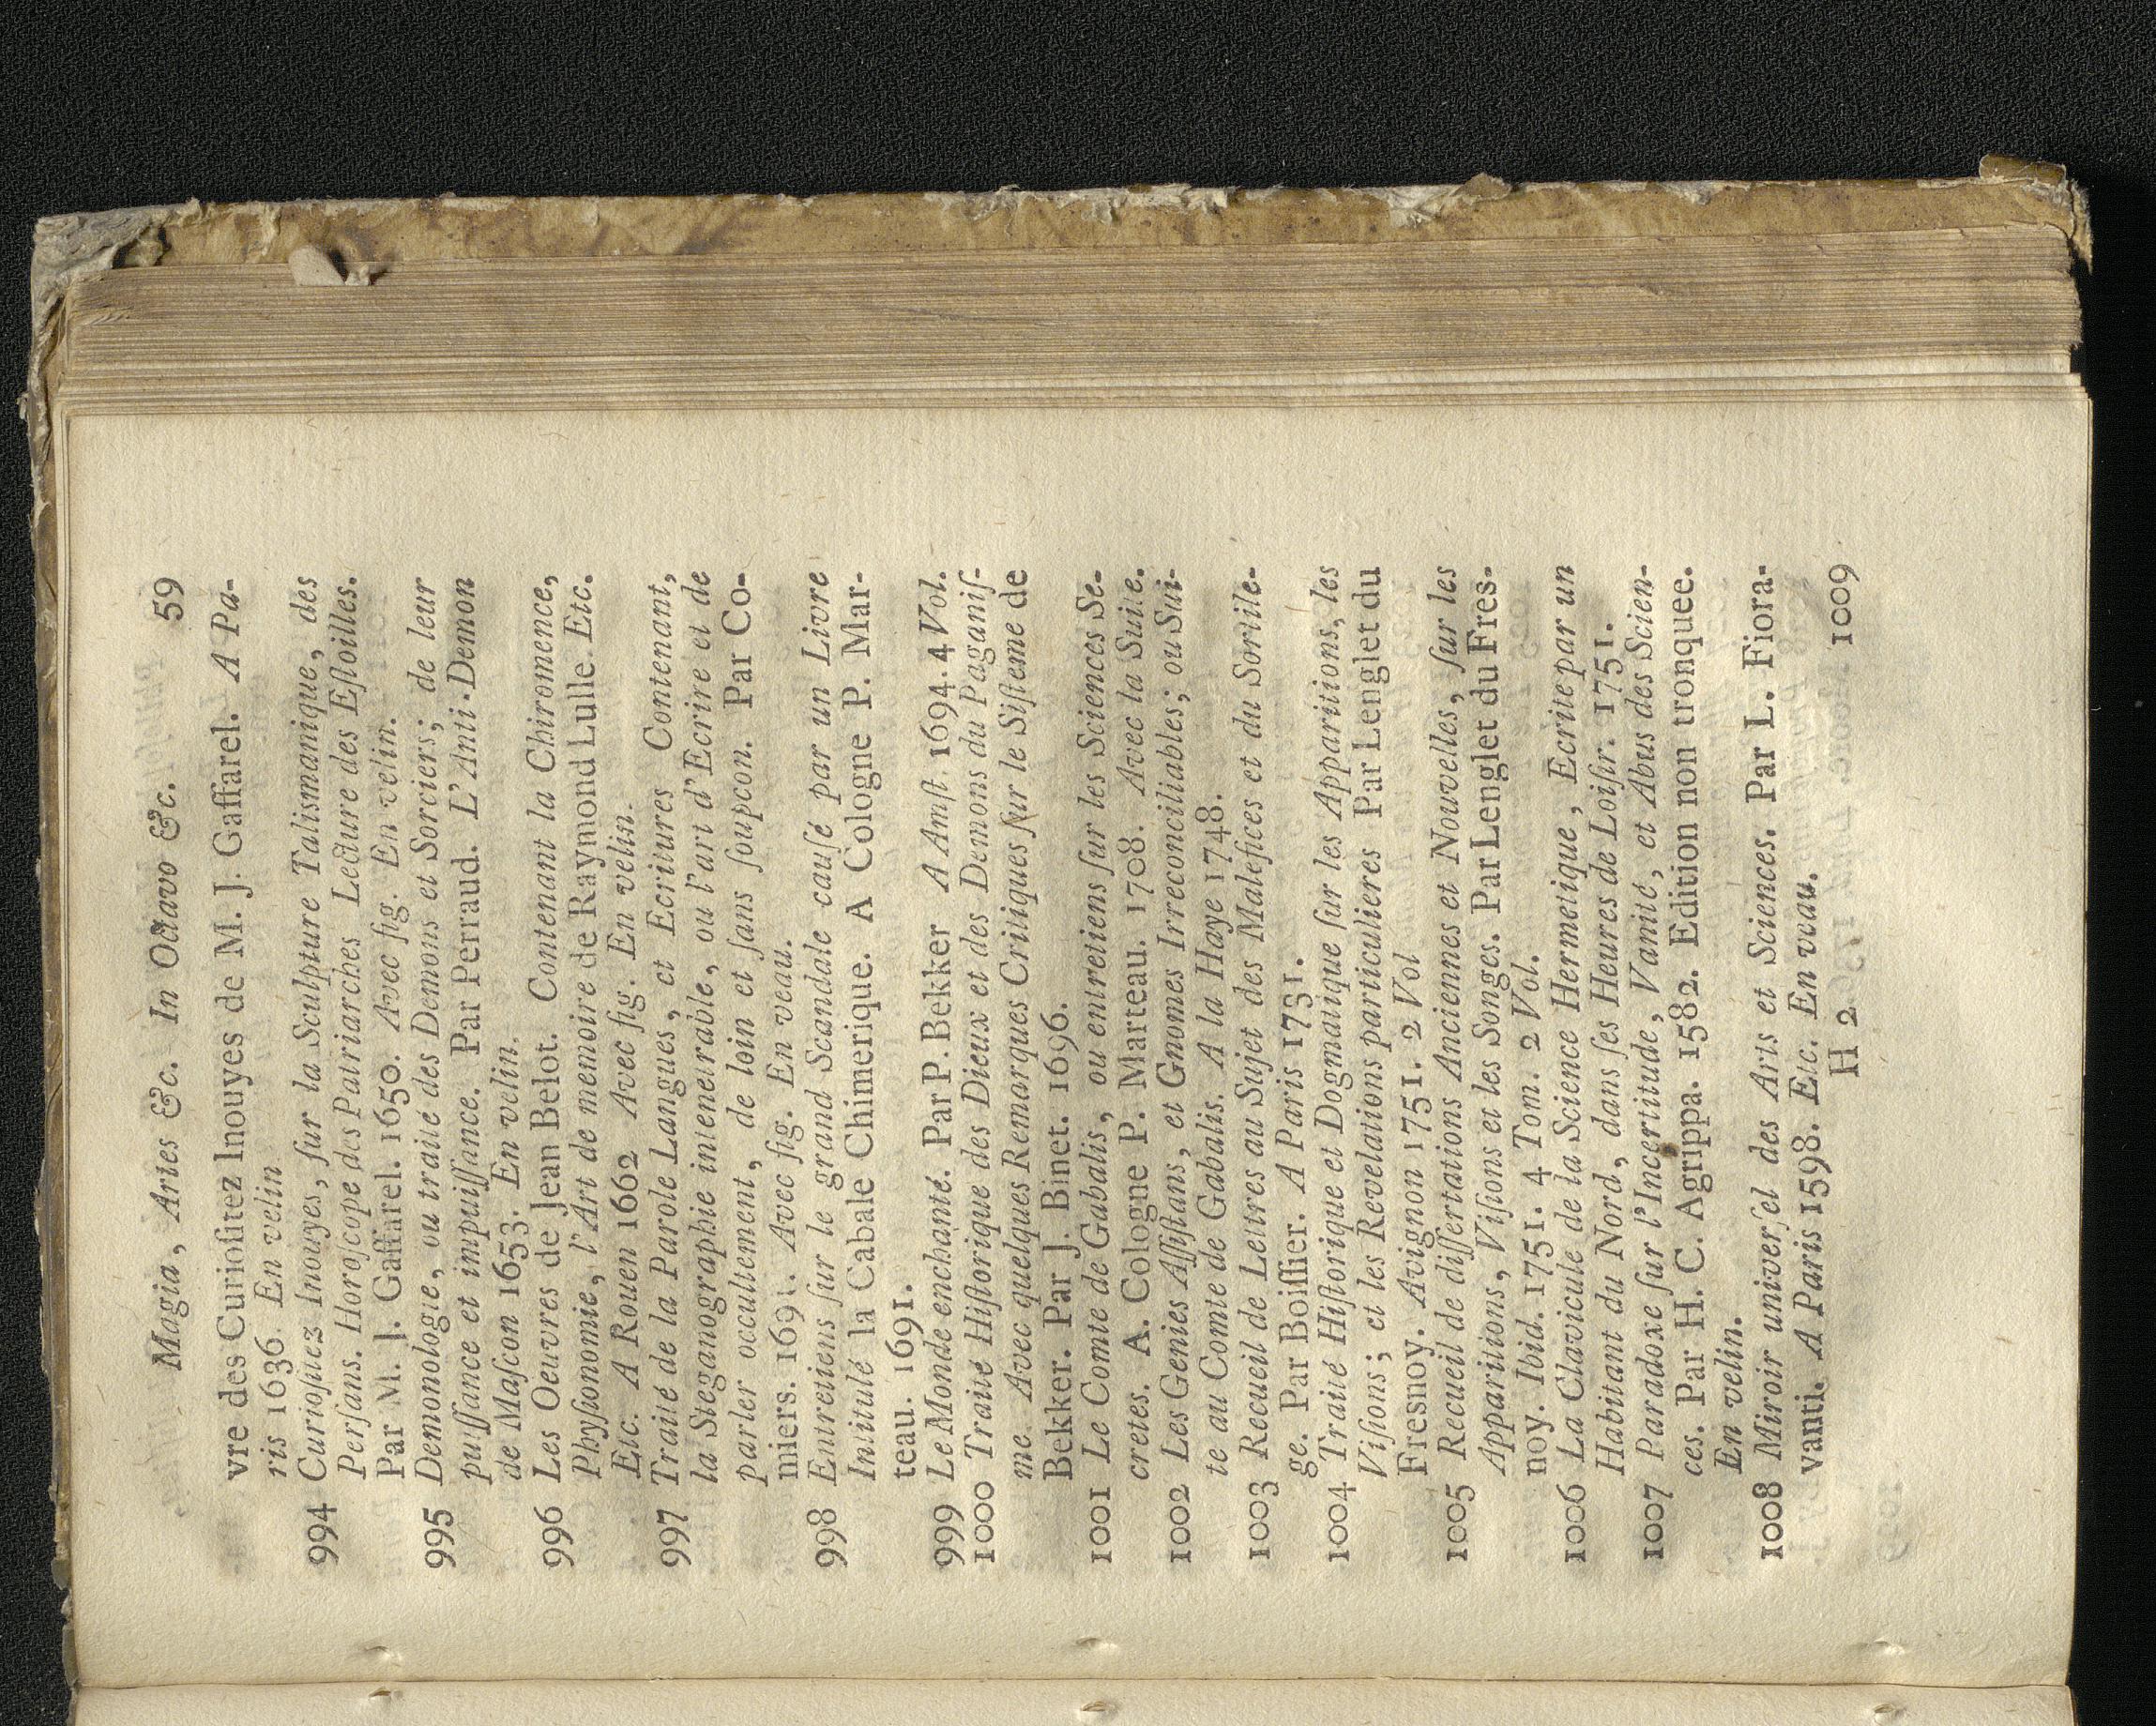 Magia, Artes &c. In Octavo &c. 59
vre des Curioſitez Inouyes de M. J. Gaffarel. A Pa-
ris 1636. En velin
994 Curioſitez Inouyes, ſur la Sculpture Talismanique, des
Perſans. Horoſcope des Patriarches Lecture des Eſtoilles.
Par M. J. Gaffarel. 1650. Avec fig. En velin.
995 Demonologie, ou traité des Demons et Sorciers; de leur
puiſſance et impuiſſance. Par Perraud. L'Anti-Demon
de Maſcon 1653. En velin.
996 Les Oeuvres de Jean Belot. Contenant la Chiromence,
Phyſionomie, l'Art de memoire de Raymond Lulle. Etc.
Etc. A Rouen 1662 Avec fig. En velin.
997 Traité de la Parole Langues, et Ecritures Contenant,
la Steganographie inteneurable, ou l'art d'Ecrire et de
parler occultement, de loin et ſans ſoupcon. Par Co-
miers. 1691. Avec fig. En veau.
998 Entretiens ſur le grand Scandale cauſé par un Livre
Intitulé la Cabale Chimerique. A Cologne P. Mar-
teau. 1691.
999 Le Monde enchanté. Par P. Bekker A Amſt. 1694. 4 Vol.
1000 Traité Hiſtorique des Dieux et des Demons du Paganiſ-
me. Avec quelques Remarques Critiques ſur le Siſteme de
Bekker. Par J. Binet. 1696.
1001 Le Comte de Gabalis, ou entretiens ſur les Sciences Se-
cretes. A. Cologne P. Marteau. 1708. Avec la Suite.
1002 Les Genies Aſſiſtans, et Gnomes Irreconciliables; ou Sui-
te au Comte de Gabalis. A la Haye 1748.
1003 Recueil de Lettres au Sujet des Malefices et du Sortile-
ge. Par Boiſſier. A Paris 1731.
1004 Traité Hiſtorique et Dogmatique ſur les Apparitions, les
Viſions; et les Revelations particulieres Par Lenglet du
Fresnoy. Avignon 1751. 2 Vol
1005 Recueil de diſſertations Anciennes et Nouvelles, ſur les
Apparitions, Viſions et les Songes. Par Lenglet du Fres-
noy. Ibid. 1751. 4 Tom. 2 Vol.
1006 La Clavicule de la Science Hermetique, Ecrite par un
Habitant du Nord, dans ſes Heures de Loiſir. 1751.
1007 Paradoxe ſur l'Incertitude, Vanité, et Abus des Scien-
ces. Par H. C. Agrippa. 1582. Edition non tronquee.
En velin.
1008 Miroir univerſel des Arts et Sciences. Par L. Fiora-
vanti. A Paris 1598. Etc. En veau.
H 2 1009